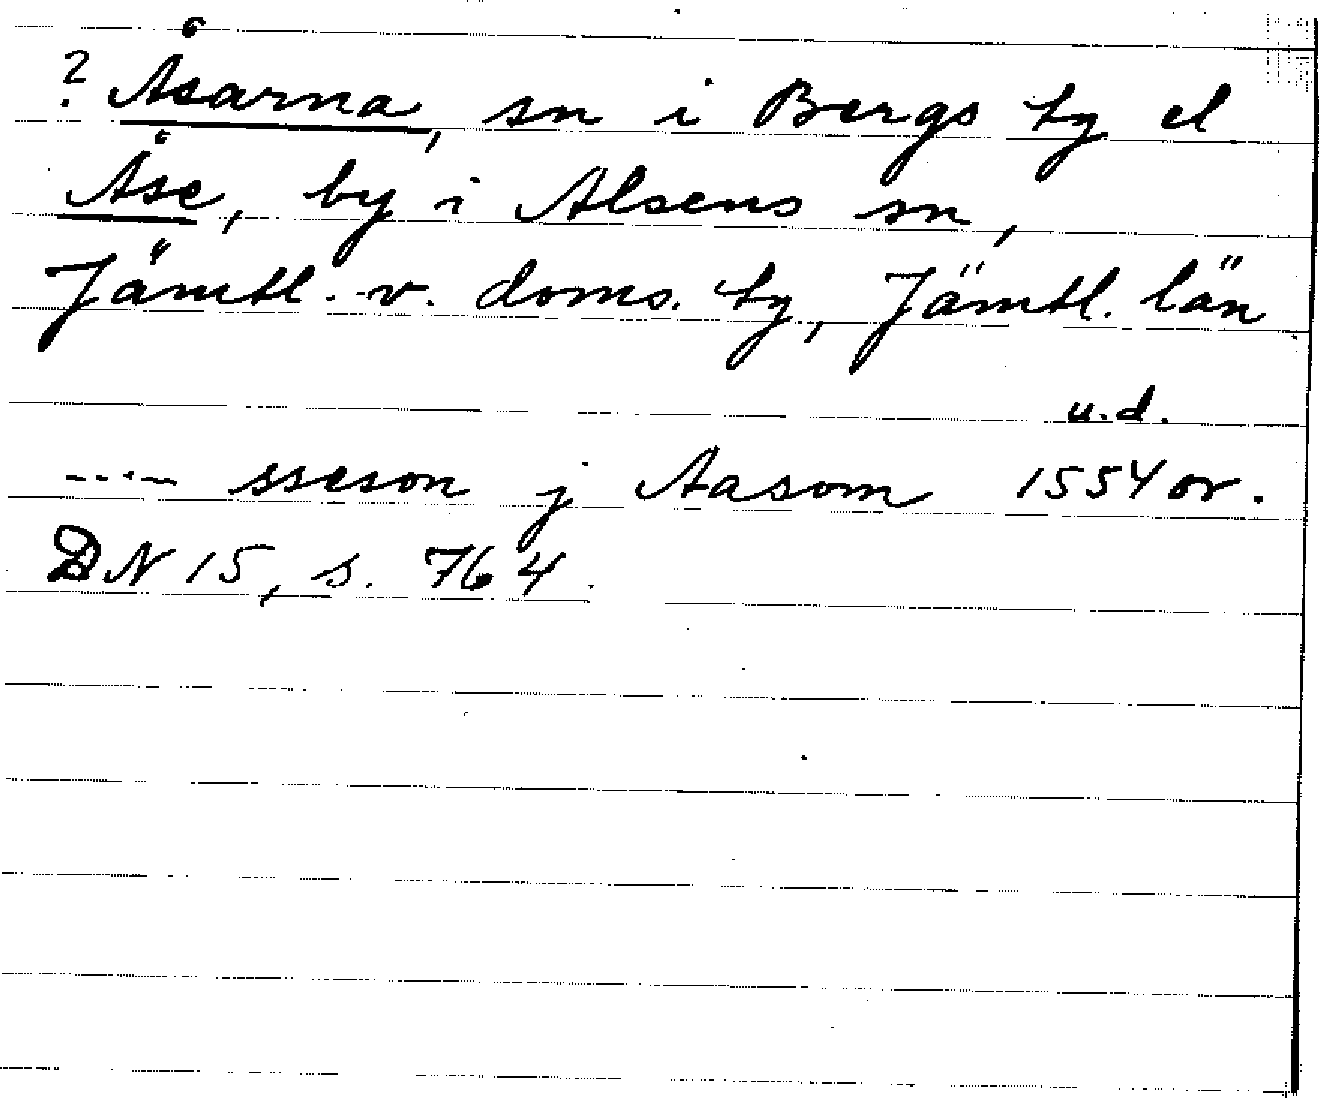 ? Åsarna, sn i Bergs tg el
Åse, by i Alsens sn,
Jämtl. v. doms. tg, Jämtl. län
u.d.
----- sseson j Aasom 1554 or.
DN 15, s. 764.